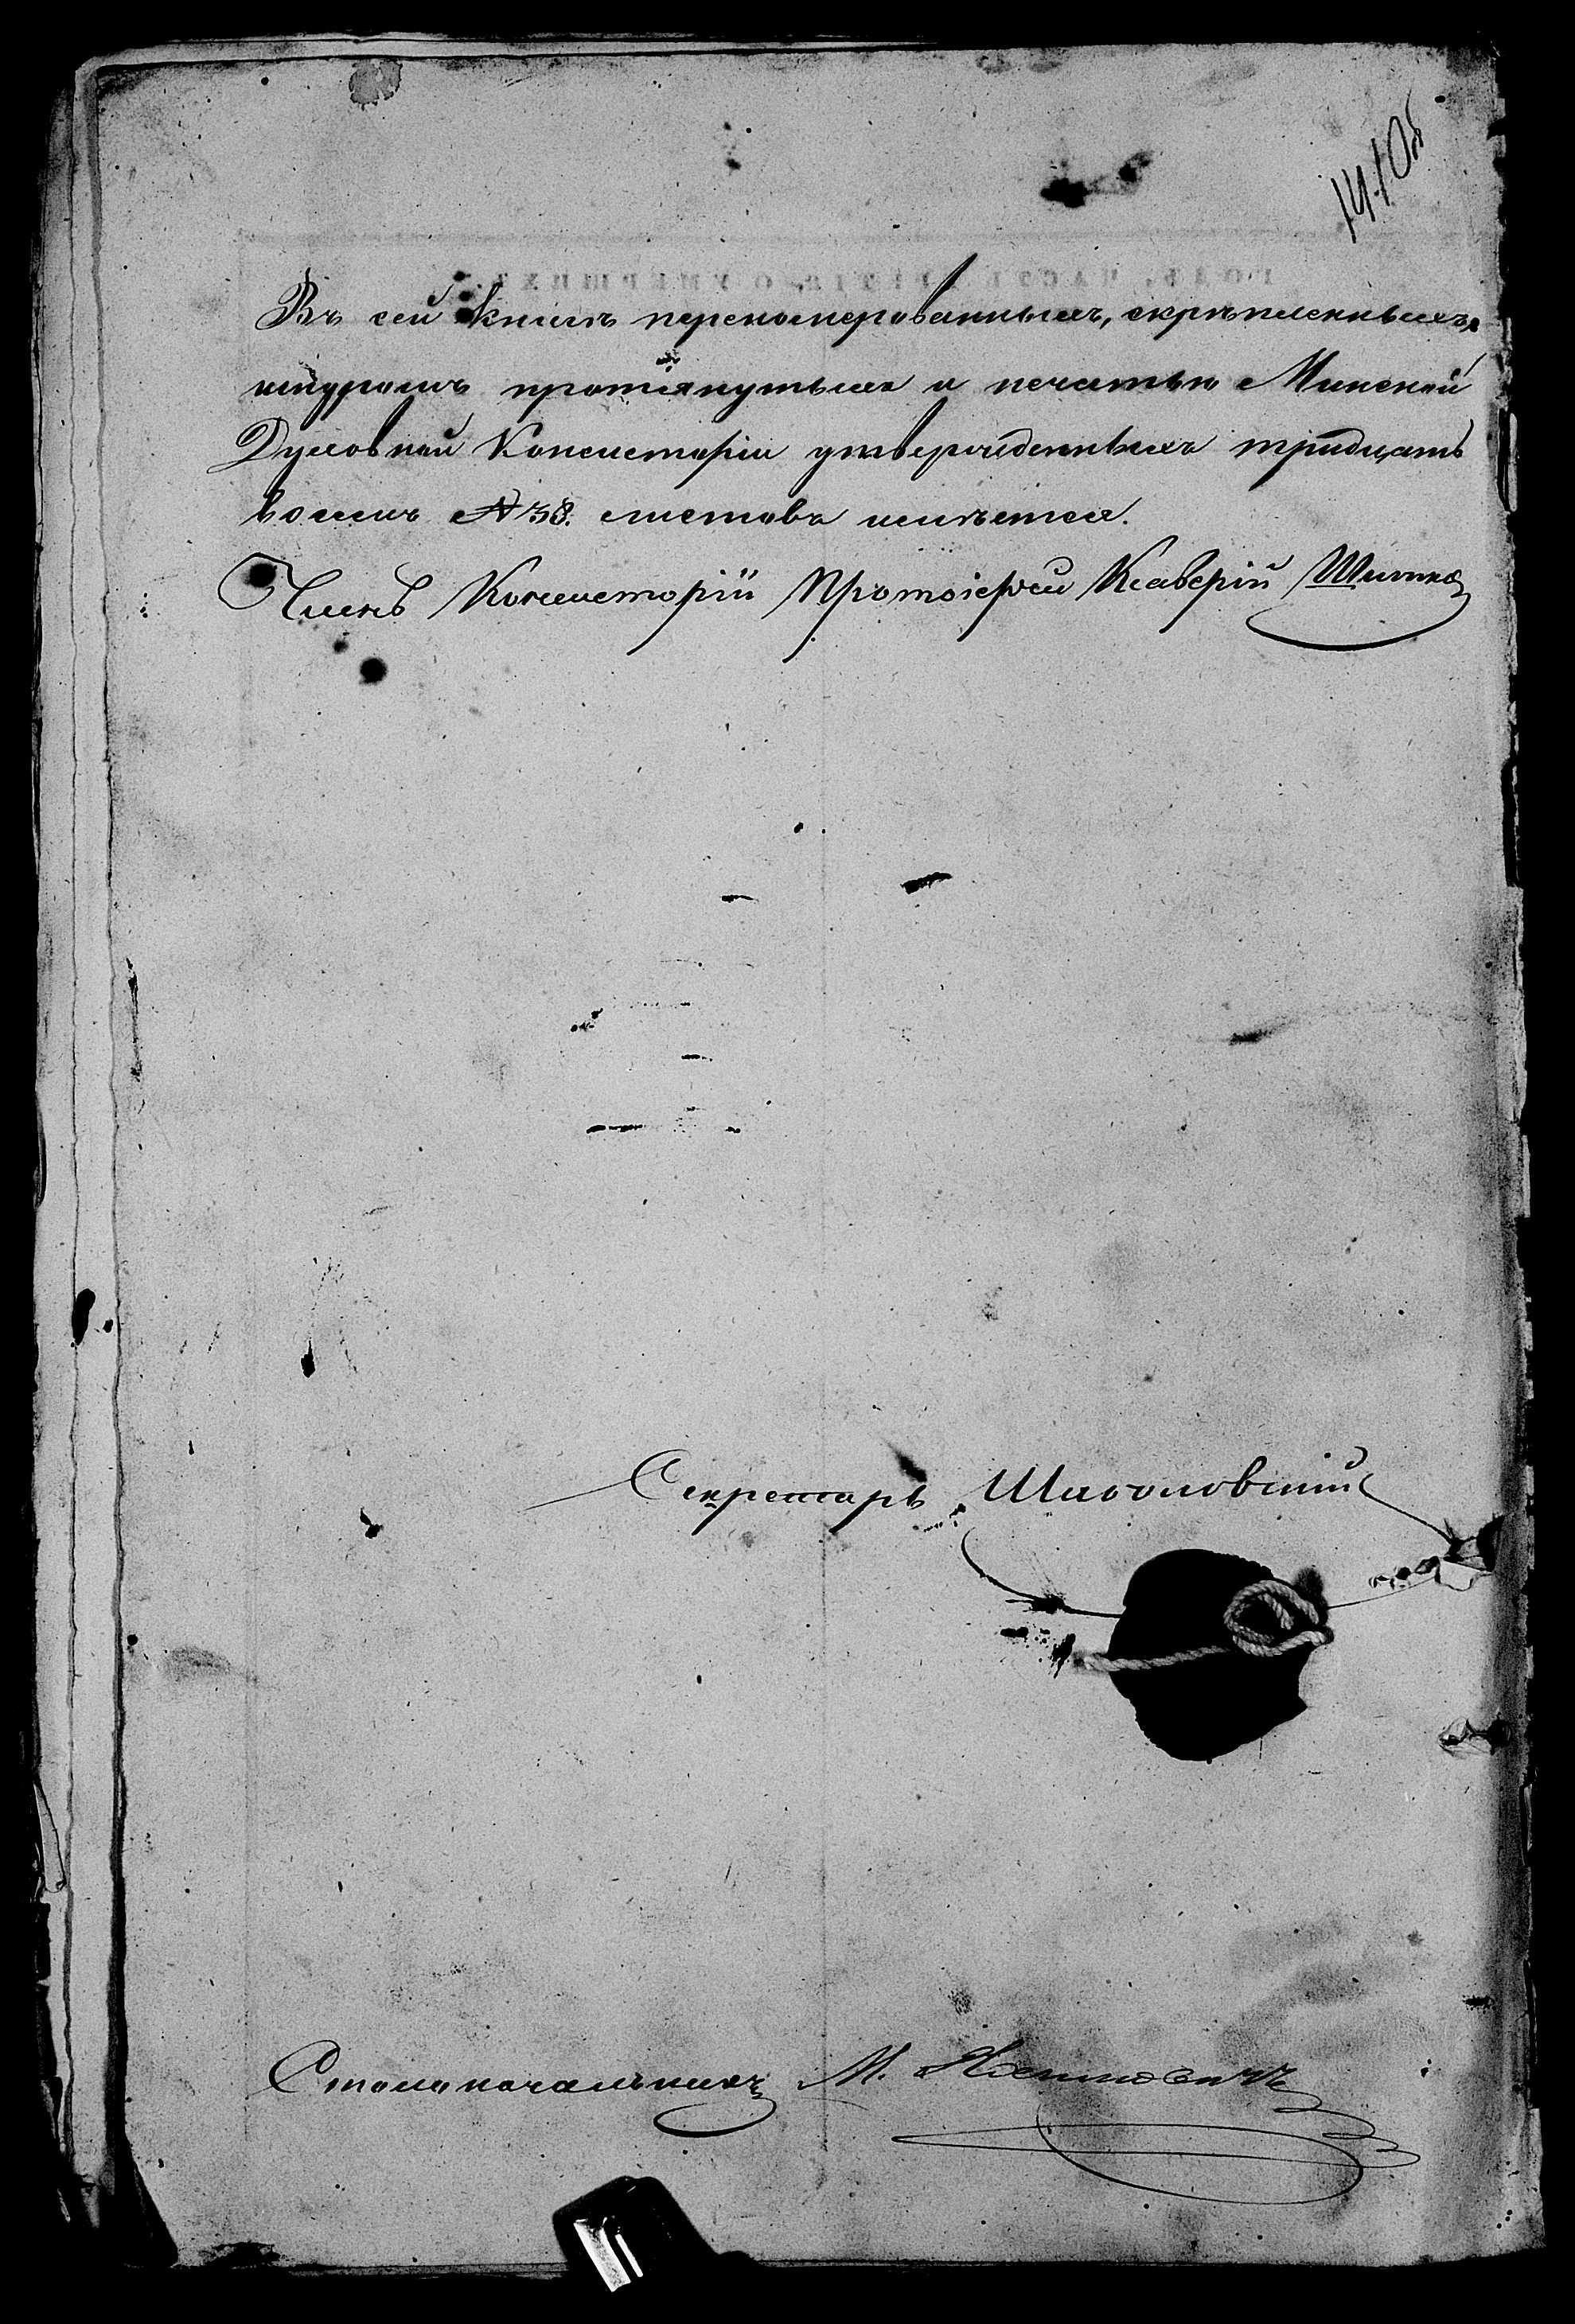 141об
Въ сей книгѣ переномерованныхъ, скрѣпленныхъ,
шнуромъ протянутыхъ и печатью Минской
Духовной Консисторіи утвержденныхъ тридцать
восемь № 38. листовъ имѣется.
Членъ Консисторіи Протоіерей Ксаверій
Секретарь
Столоначальникъ М.